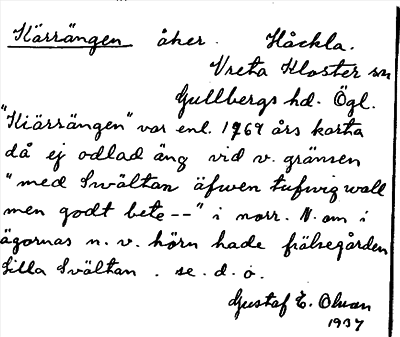 Kärrängen åker. Håckla.
Vreta Kloster sn
Gullbergs hd. Ögl.
"Kiärrängen" var enl. 1769 års karta
då ej odlad äng vid v. gränsen
"med Swältan äfwen tufwig wall
men godt bete--" i norr. N. om i
ägornas n. v. hörn hade frälsegården
Lilla Svältan. se. d. o.
Gustaf E. Olson
1937